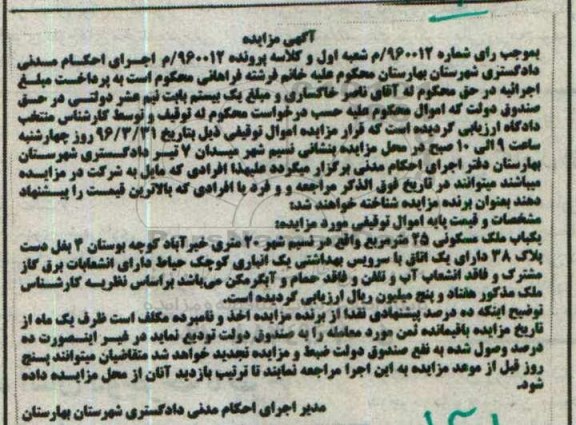 آگهی مزایده
بموجب رای شماره ۹۶۰۰۱۲/م شعبه اول و کلاسه پرونده ۹۶۰۰۱۲/م اجرای احکام مدنی
دادگستری شهرستان بهارستان محکوم علیه خانم فرشته فراهانی محکوم است به پرداخت مبلغ
اجرائیه در حق محکوم له آقای ناصر خاکساری و مبلغ یک بیستم بابت نیم عشر دولتی در حق
صندوق دولت که اموال محکوم علیه حسب درخواست محکوم له توقیف و توسط کارشناس منتخب
دادگاه ارزیابی گردیده است که قرار مزایده اموال توقیفی ذیل بتاریخ ۹۶/۳/۳۱ روز چهارشنبه
ساعت ۹ الی ۱۰ صبح در محل مزایده بنشانی نسیم شهر میدان ۷ تیر دادگستری شهرستان
بهارستان دفتر اجرای احکام مدنی برگزار میگردد علیهذا افرادی که مایل به شرکت در مزایده
میباشند میتوانند در تاریخ فوق الذکر مراجعه و و فرد یا افرادی که بالاترین قیمت را پیشنهاد
دهند بعنوان برنده مزایده شناخته خواهند شد:
مشخصات و قیمت پایه اموال توقیفی مورد مزایده:
یکباب ملک مسکونی ۲۵ مترمربع واقع در نسیم شهر ۲۰ متری خیرآباد کوچه بوستان ۴ بغل دست
پلاک ۳۸ دارای یک اتاق با سرویس بهداشتی یک انباری کوچک حیاط دارای انشعابات برق گاز
مشترک و فاقد انشعاب آب و تلفن و فاقد حمام و آبگرمکن می‌باشد براساس نظریه کارشناس
ملک مذکور هفتاد و پنج میلیون ریال ارزیابی گردیده است.
توضیح اینکه ده درصد پیشنهادی نقدا از برنده مزایده اخذ و نامبرده مکلف است ظرف یک ماه از
تاریخ مزایده باقیمانده ثمن مورد معامله را به صندوق دولت تودیع نماید در غیر اینصورت ده
درصد وصول شده به نفع صندوق دولت ضبط و مزایده تجدید خواهد شد متقاضیان میتوانند پنج
روز قبل از موعد مزایده به این اجرا مراجعه نمایند تا ترتیب بازدید آنان از محل مزایده داده
شود.
مدیر اجرای احکام مدنی دادگستری شهرستان بهارستان